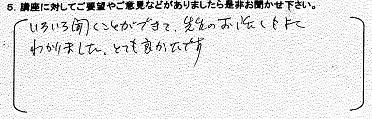 5. 講座に対してご要望やご意見などがありましたら是非お聞かせ下さい。
いろいろ聞くことができて、先生のお話しもよく
わかりました。とても良かったです